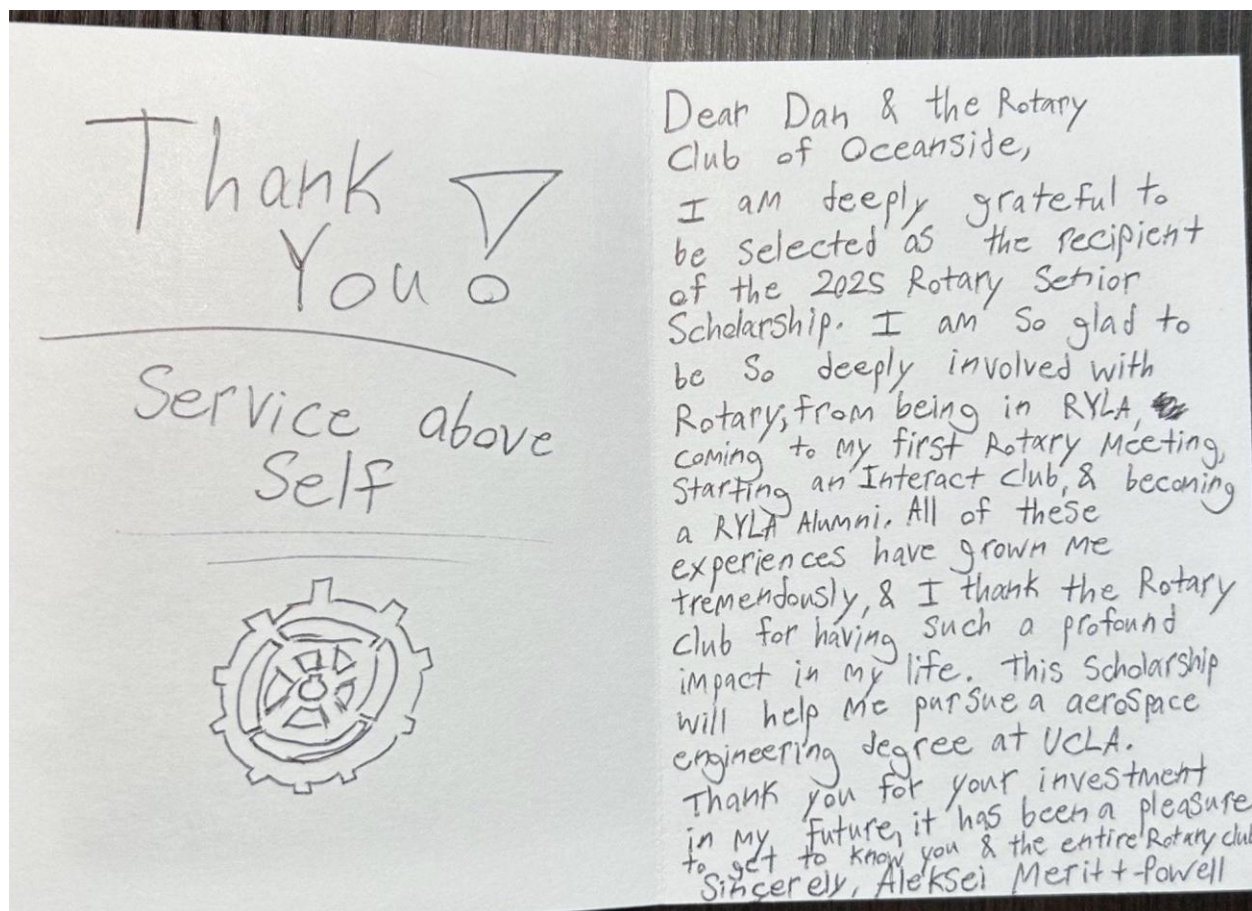 Thank
You!
Service above
Self
Dear Dan & the Rotary
Club of Oceanside,
I am deeply grateful to
be selected as the recipient
of the 2025 Rotary Senior
Scholarship. I am so glad to
be so deeply involved with
Rotary; from being in RYLA,
coming to my first Rotary Meeting,
starting an Interact Club, & becoming
a RYLA Alumni. All of these
experiences have grown me
tremendously, & I thank the Rotary
Club for having such a profound
impact in my life. This Scholarship
will help me pursue a aerospace
engineering degree at UCLA.
Thank you for your investment
in my future, it has been a pleasure
to get to know you & the entire Rotary club
Sincerely, Aleksei Meritt-Powell